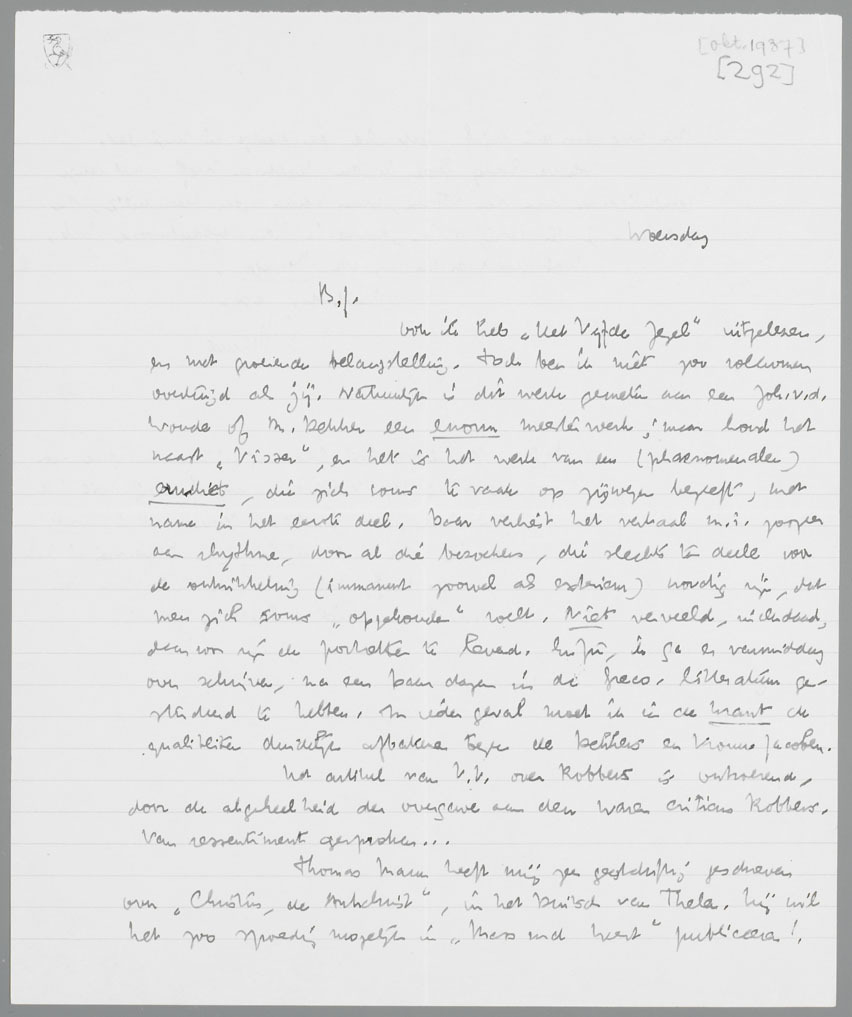 [okt. 1937]
[292]
Woensdag
B.J.
ook ik heb „Het Vijfde Zegel" uitgelezen,
en met groeiende belangstelling. Toch ben ik niet zoo volkomen
overtuigd als jij. Natuurlijk is dit werk gemeten aan een Joh. v.d.
Woude of M. Dekker een enorm meesterwerk; maar houd het
naast „Visser", en het is het werk van een (phaenomenalen)
erudiet, die zich soms te vaak op zijwegen begeeft, met
name in het eerste deel. Daar verliest het verhaal m.i.
aan rhythme, door al die bezoeken, die slechts ten deele voor
de ontwikkeling (immanent zoowel als extern) noodig zijn, dat
men zich soms „opgehouden" voelt. Niet verveeld, inderdaad,
daarvoor zijn de portretten te levend. Enfin, ik ga er vanmiddag
over schrijven, na een paar dagen in de Greco-litteratuur ge-
studeerd te hebben. In ieder geval moet ik in de krant de
qualiteiten duidelijk afbakenen tegen de Dekkers en
Het artikel van V.V. over Robbers is ontroerend,
door de algeheelheid der overgave aan den waren criticus Robbers.
Van ressentiment gesproken...
Thomas Mann heeft mij zeer geestdriftig geschreven
over „Christus, de Antichrist", in het Duitsch van Thelen. Hij wil
het zoo spoedig mogelijk in „Mass und Wert" publiceeren!